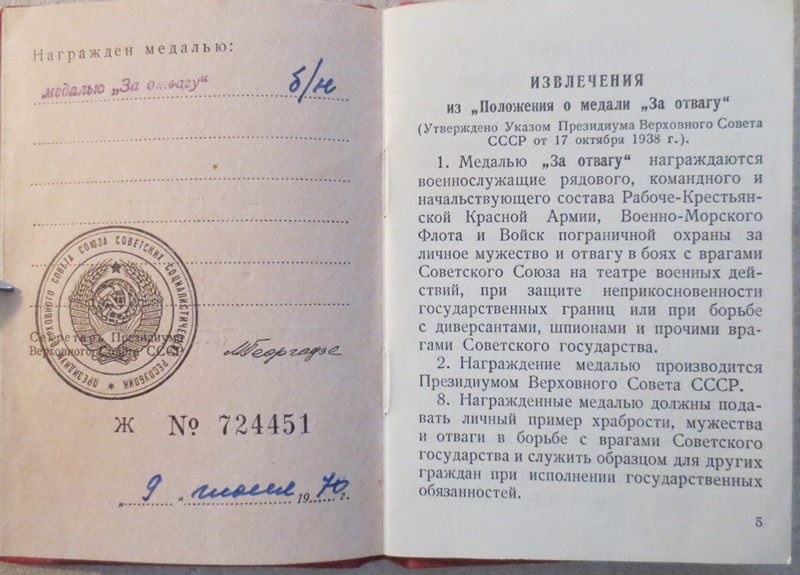 Награжден медалью:
медалью „За отвагу“ б/н
ПРЕЗИДИУМ ВЕРХОВНОГО СОВЕТА СОЮЗА СОВЕТСКИХ СОЦИАЛИСТИЧЕСКИХ РЕСПУБЛИК
Секретарь Президиума
Верховного Совета СССР МГеоргадзе
Ж № 724451
„ 9 “ июля 1970 г.
ИЗВЛЕЧЕНИЯ
из „Положения о медали „За отвагу“
(Утверждено Указом Президиума Верховного Совета
СССР от 17 октября 1938 г.).
1. Медалью „За отвагу“ награждаются
военнослужащие рядового, командного и
начальствующего состава Рабоче-Крестьян-
ской Красной Армии, Военно-Морского
Флота и Войск пограничной охраны за
личное мужество и отвагу в боях с врагами
Советского Союза на театре военных дей-
ствий, при защите неприкосновенности
государственных границ или при борьбе
с диверсантами, шпионами и прочими вра-
гами Советского государства.
2. Награждение медалью производится
Президиумом Верховного Совета СССР.
8. Награжденные медалью должны пода-
вать личный пример храбрости, мужества
и отваги в борьбе с врагами Советского
государства и служить образцом для других
граждан при исполнении государственных
обязанностей.
5